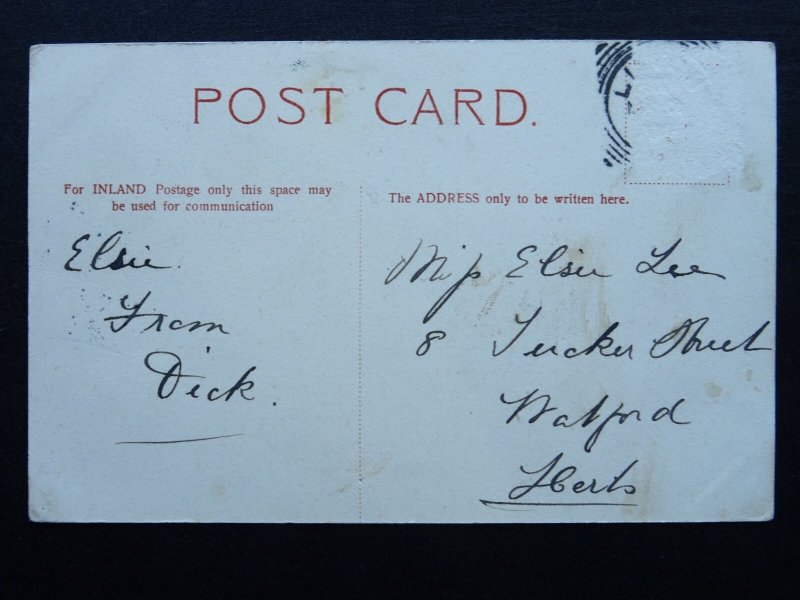 POST CARD.
For INLAND Postage only this space may
be used for communication
The ADDRESS only to be written here.
Elsie
From
Dick.
Miss Elsie Lee
8 Tucker Street
Watford
Herts